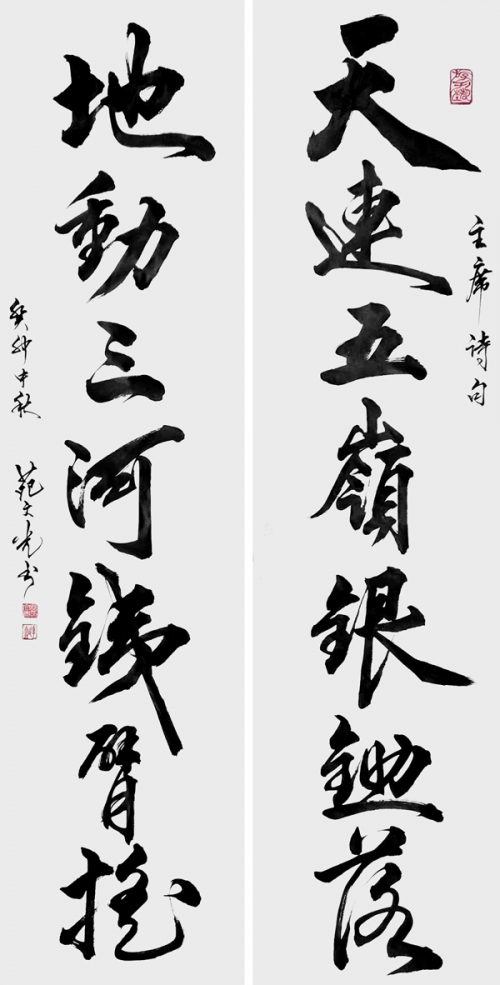 主席詩句
天連五嶺銀鋤落
地動三河銕臂搖
癸卯中秋
光书